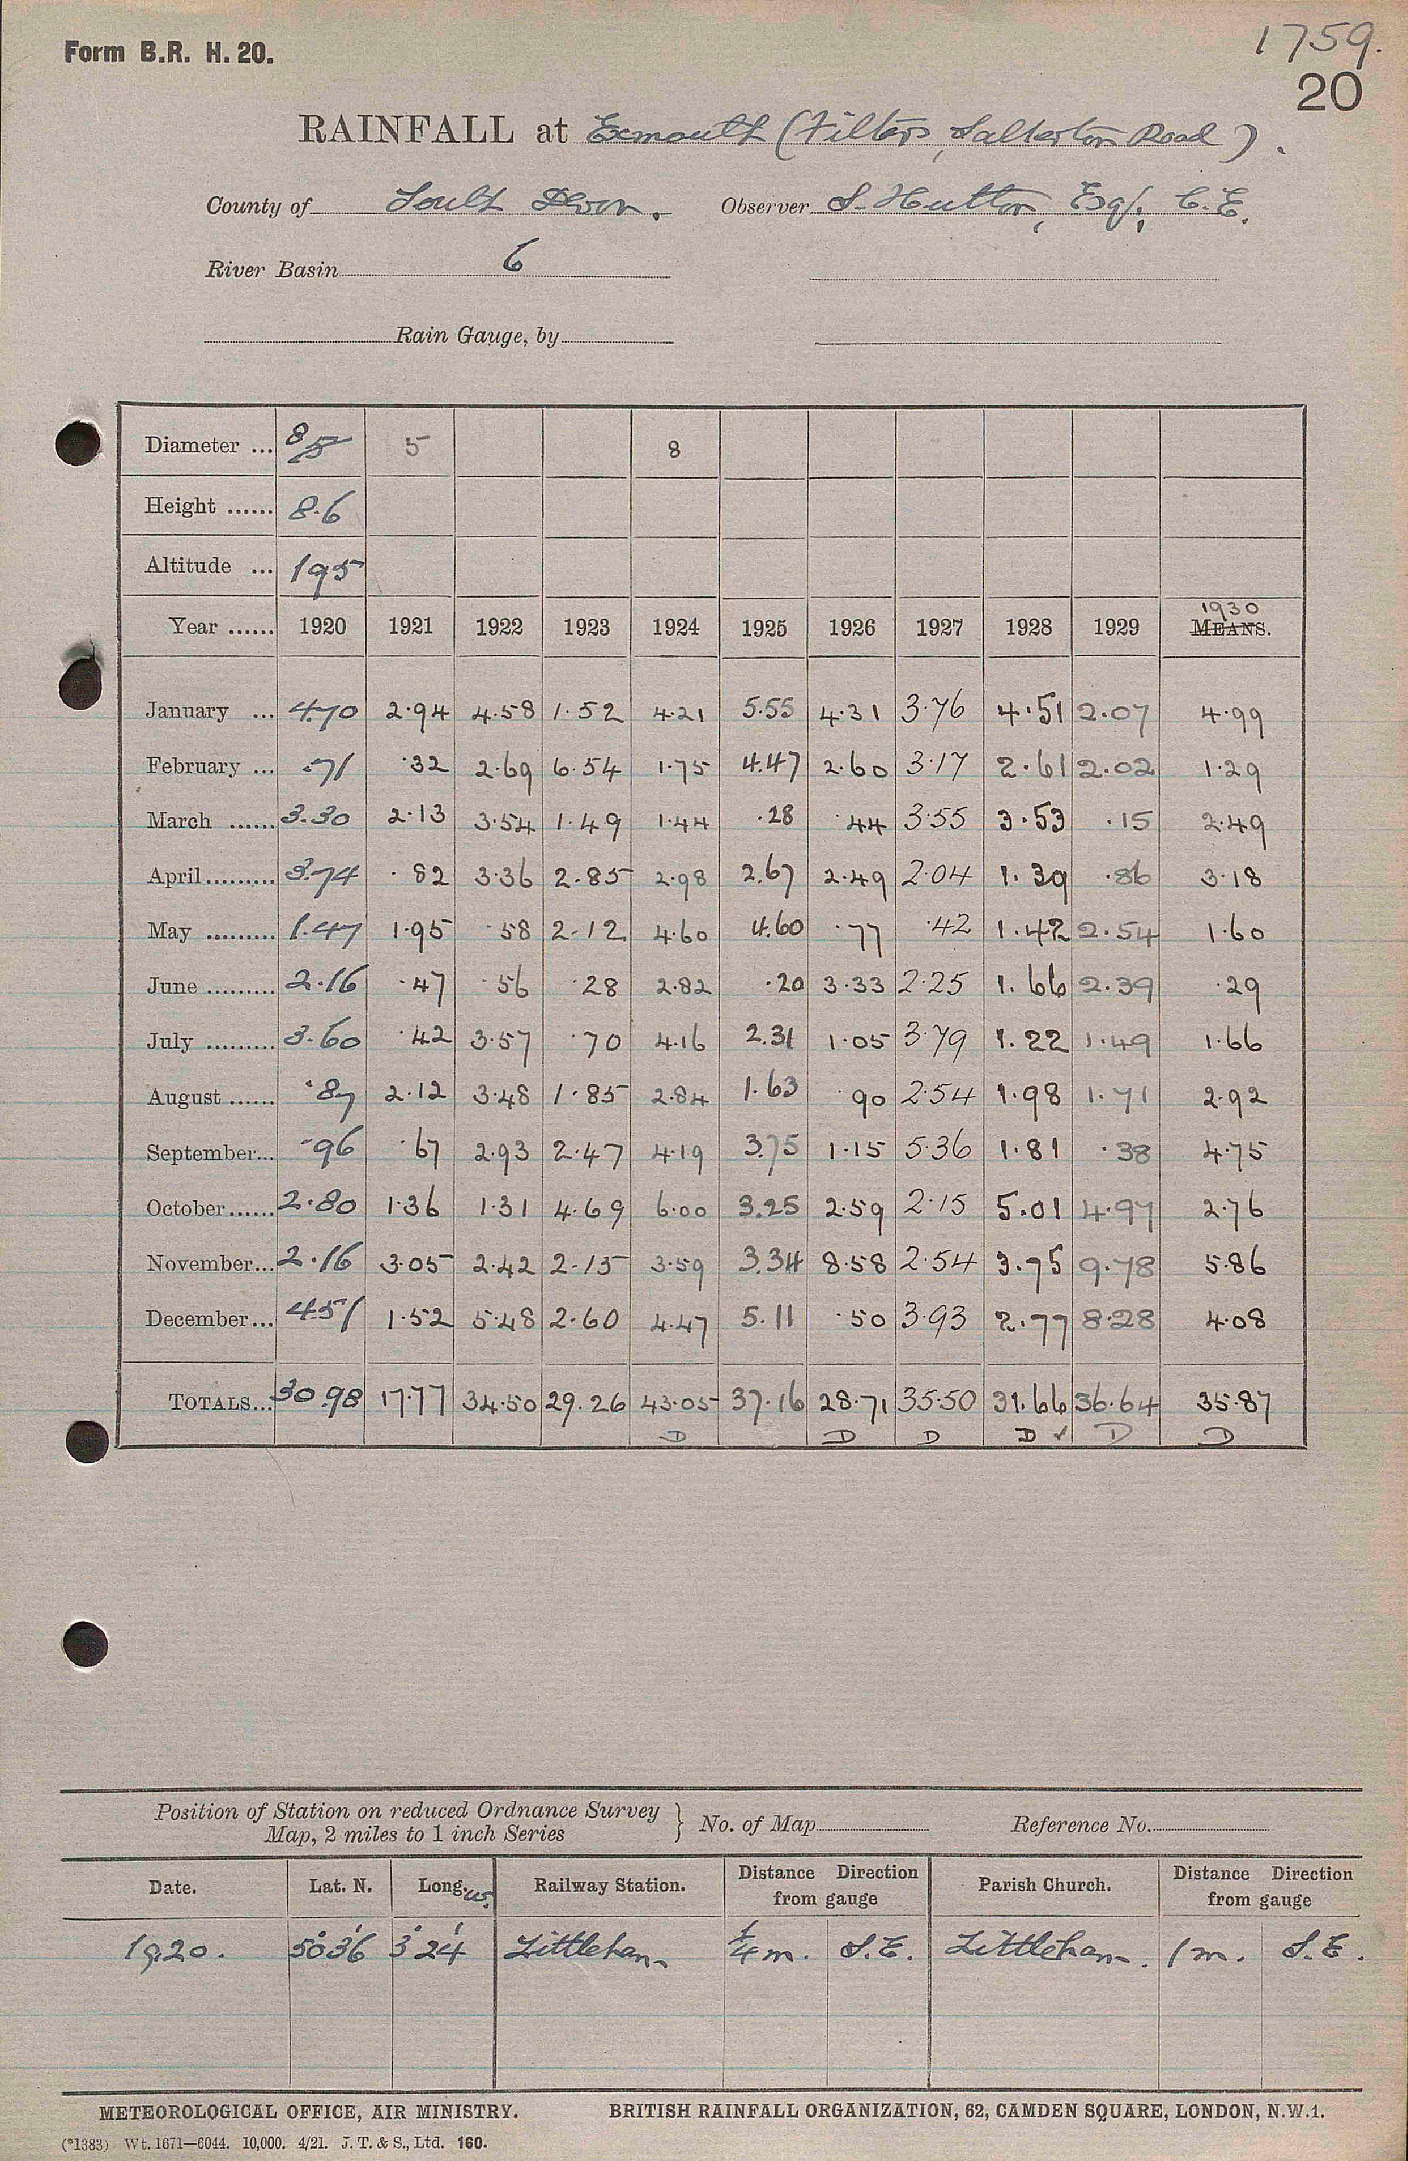 Form B.R. H. 20.
1759.
20
RAINFALL at Exmouth (Filters, Salterton Road).
County of South Devon. Observer S. Hutton, Esq., C.E.
River Basin 6
Rain Gauge, by
Diameter ... 8 5 5 8
Height ...... 8.6
Altitude ... 195
Year ...... 1920 1921 1922 1923 1924 1925 1926 1927 1928 1929 1930 MEANS.
January ... 4.70 2.94 4.58 1.52 4.21 5.55 4.31 3.76 4.51 2.07 4.99
February ... .71 .32 2.69 6.54 1.75 4.47 2.60 3.17 2.61 2.02 1.29
March ...... 3.30 2.13 3.54 1.49 1.44 .28 .44 3.55 3.53 .15 2.49
April......... 3.74 .82 3.36 2.85 2.98 2.67 2.49 2.04 1.39 .86 3.18
May ......... 1.47 1.95 .58 2.12 4.60 4.60 .77 .42 1.42 2.54 1.60
June ......... 2.16 .47 .56 .28 2.82 .20 3.33 2.25 1.66 2.39 .29
July ......... 3.60 .42 3.57 .70 4.16 2.31 1.05 3.79 1.22 1.49 1.66
August ...... .87 2.12 3.48 1.85 2.84 1.63 .90 2.54 1.98 1.71 2.92
September... .96 .67 2.93 2.47 4.19 3.75 1.15 5.36 1.81 .38 4.75
October...... 2.80 1.36 1.31 4.69 6.00 3.25 2.59 2.15 5.01 4.97 2.76
November... 2.16 3.05 2.42 2.15 3.59 3.34 8.58 2.54 3.75 9.78 5.86
December... 4.51 1.52 5.48 2.60 4.47 5.11 .50 3.93 2.77 8.28 4.08
TOTALS... 30.98 17.77 34.50 29.26 43.05 37.16 28.71 35.50 31.66 36.64 35.87
D D D D ✓ D D
Position of Station on reduced Ordnance Survey Map, 2 miles to 1 inch Series } No. of Map Reference No.
Date. Lat. N. Long. W. Railway Station. Distance Direction from gauge Parish Church. Distance Direction from gauge
1920. 50°36' 3°24' Littleham 1/4 m. S.E. Littleham. 1 m. S.E.
METEOROLOGICAL OFFICE, AIR MINISTRY. BRITISH RAINFALL ORGANIZATION, 62, CAMDEN SQUARE, LONDON, N.W.1.
(*1383) Wt. 1671—6044. 10,000. 4/21. J. T. & S., Ltd. 160.